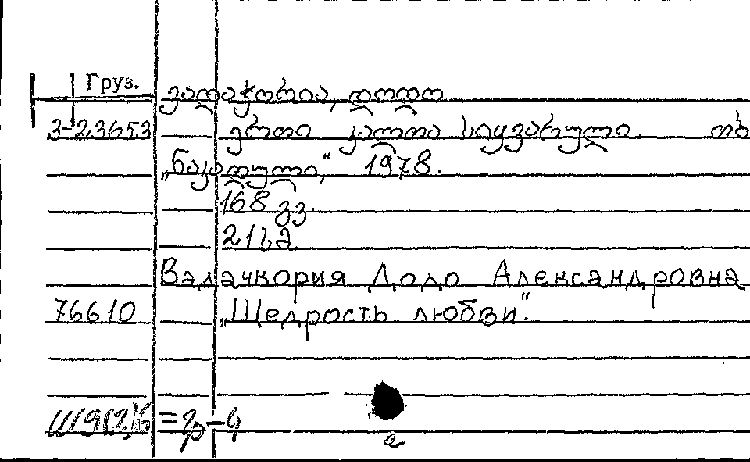 Груз. ვადაჭკორია, დოდო
3-23653 ერთი კალთა სიყვარული. თბ
„ნაკადული,“ 1978.
168 გვ.
21სმ
Вадачкория Додо Александровна
76610 „Щедрость любви“.